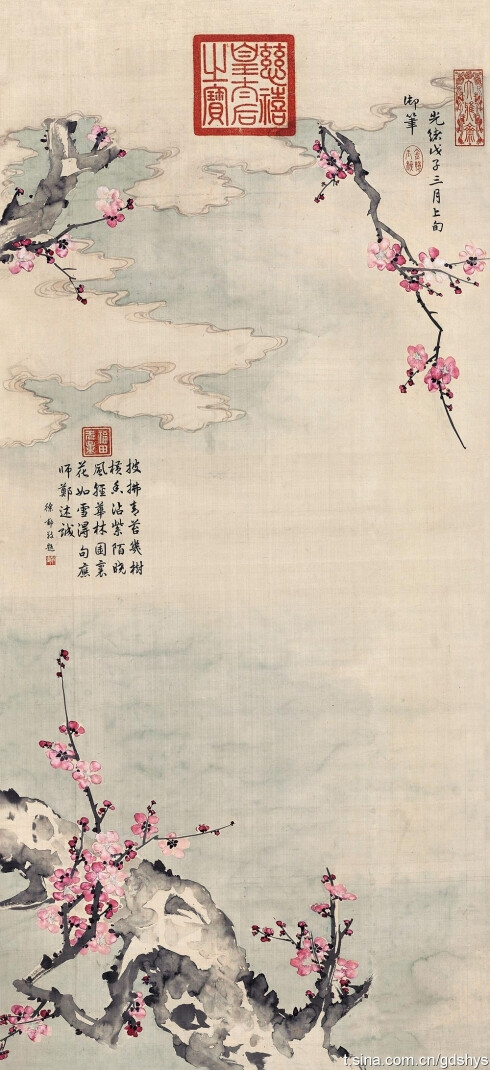 慈禧
皇太后
之寶
大雅齋
光緒戊子三月上旬
御筆
披拂青苔幾樹
橫香沾紫陌曉
風輕華林園裏
花如雪得句應
師鄭述誠
徐郙敬題
t.sina.com.cn/gdshys